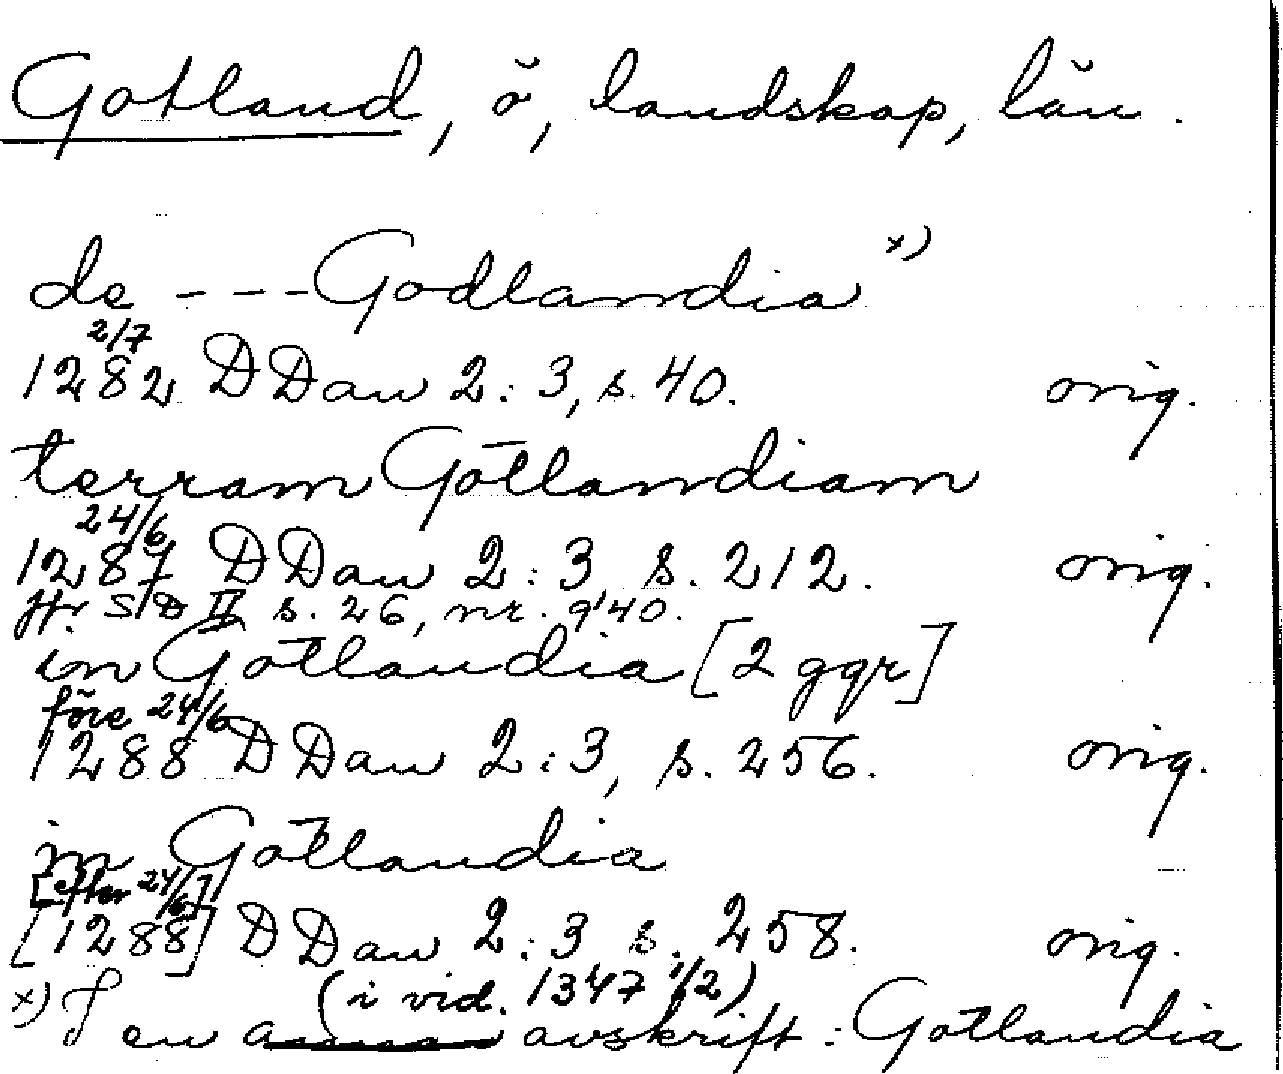 Gotland, ö, landskap, län.
de --- Godlandia x)
2/7
1282 DDan 2:3, s. 40. orig.
terram Gotlandiam
24/6
1287 DDan 2:3 s. 212. orig.
Jfr SD II s. 26, nr. 940.
in Gotlandia [2 ggr]
före 24/6
1288 DDan 2:3, s. 256. orig.
in Gotlandia
[efter 24/6]
[1288] DDan 2:3 s. 258. orig.
(i vid. 1347 1/2)
x) I en annan avskrift: Gotlandia